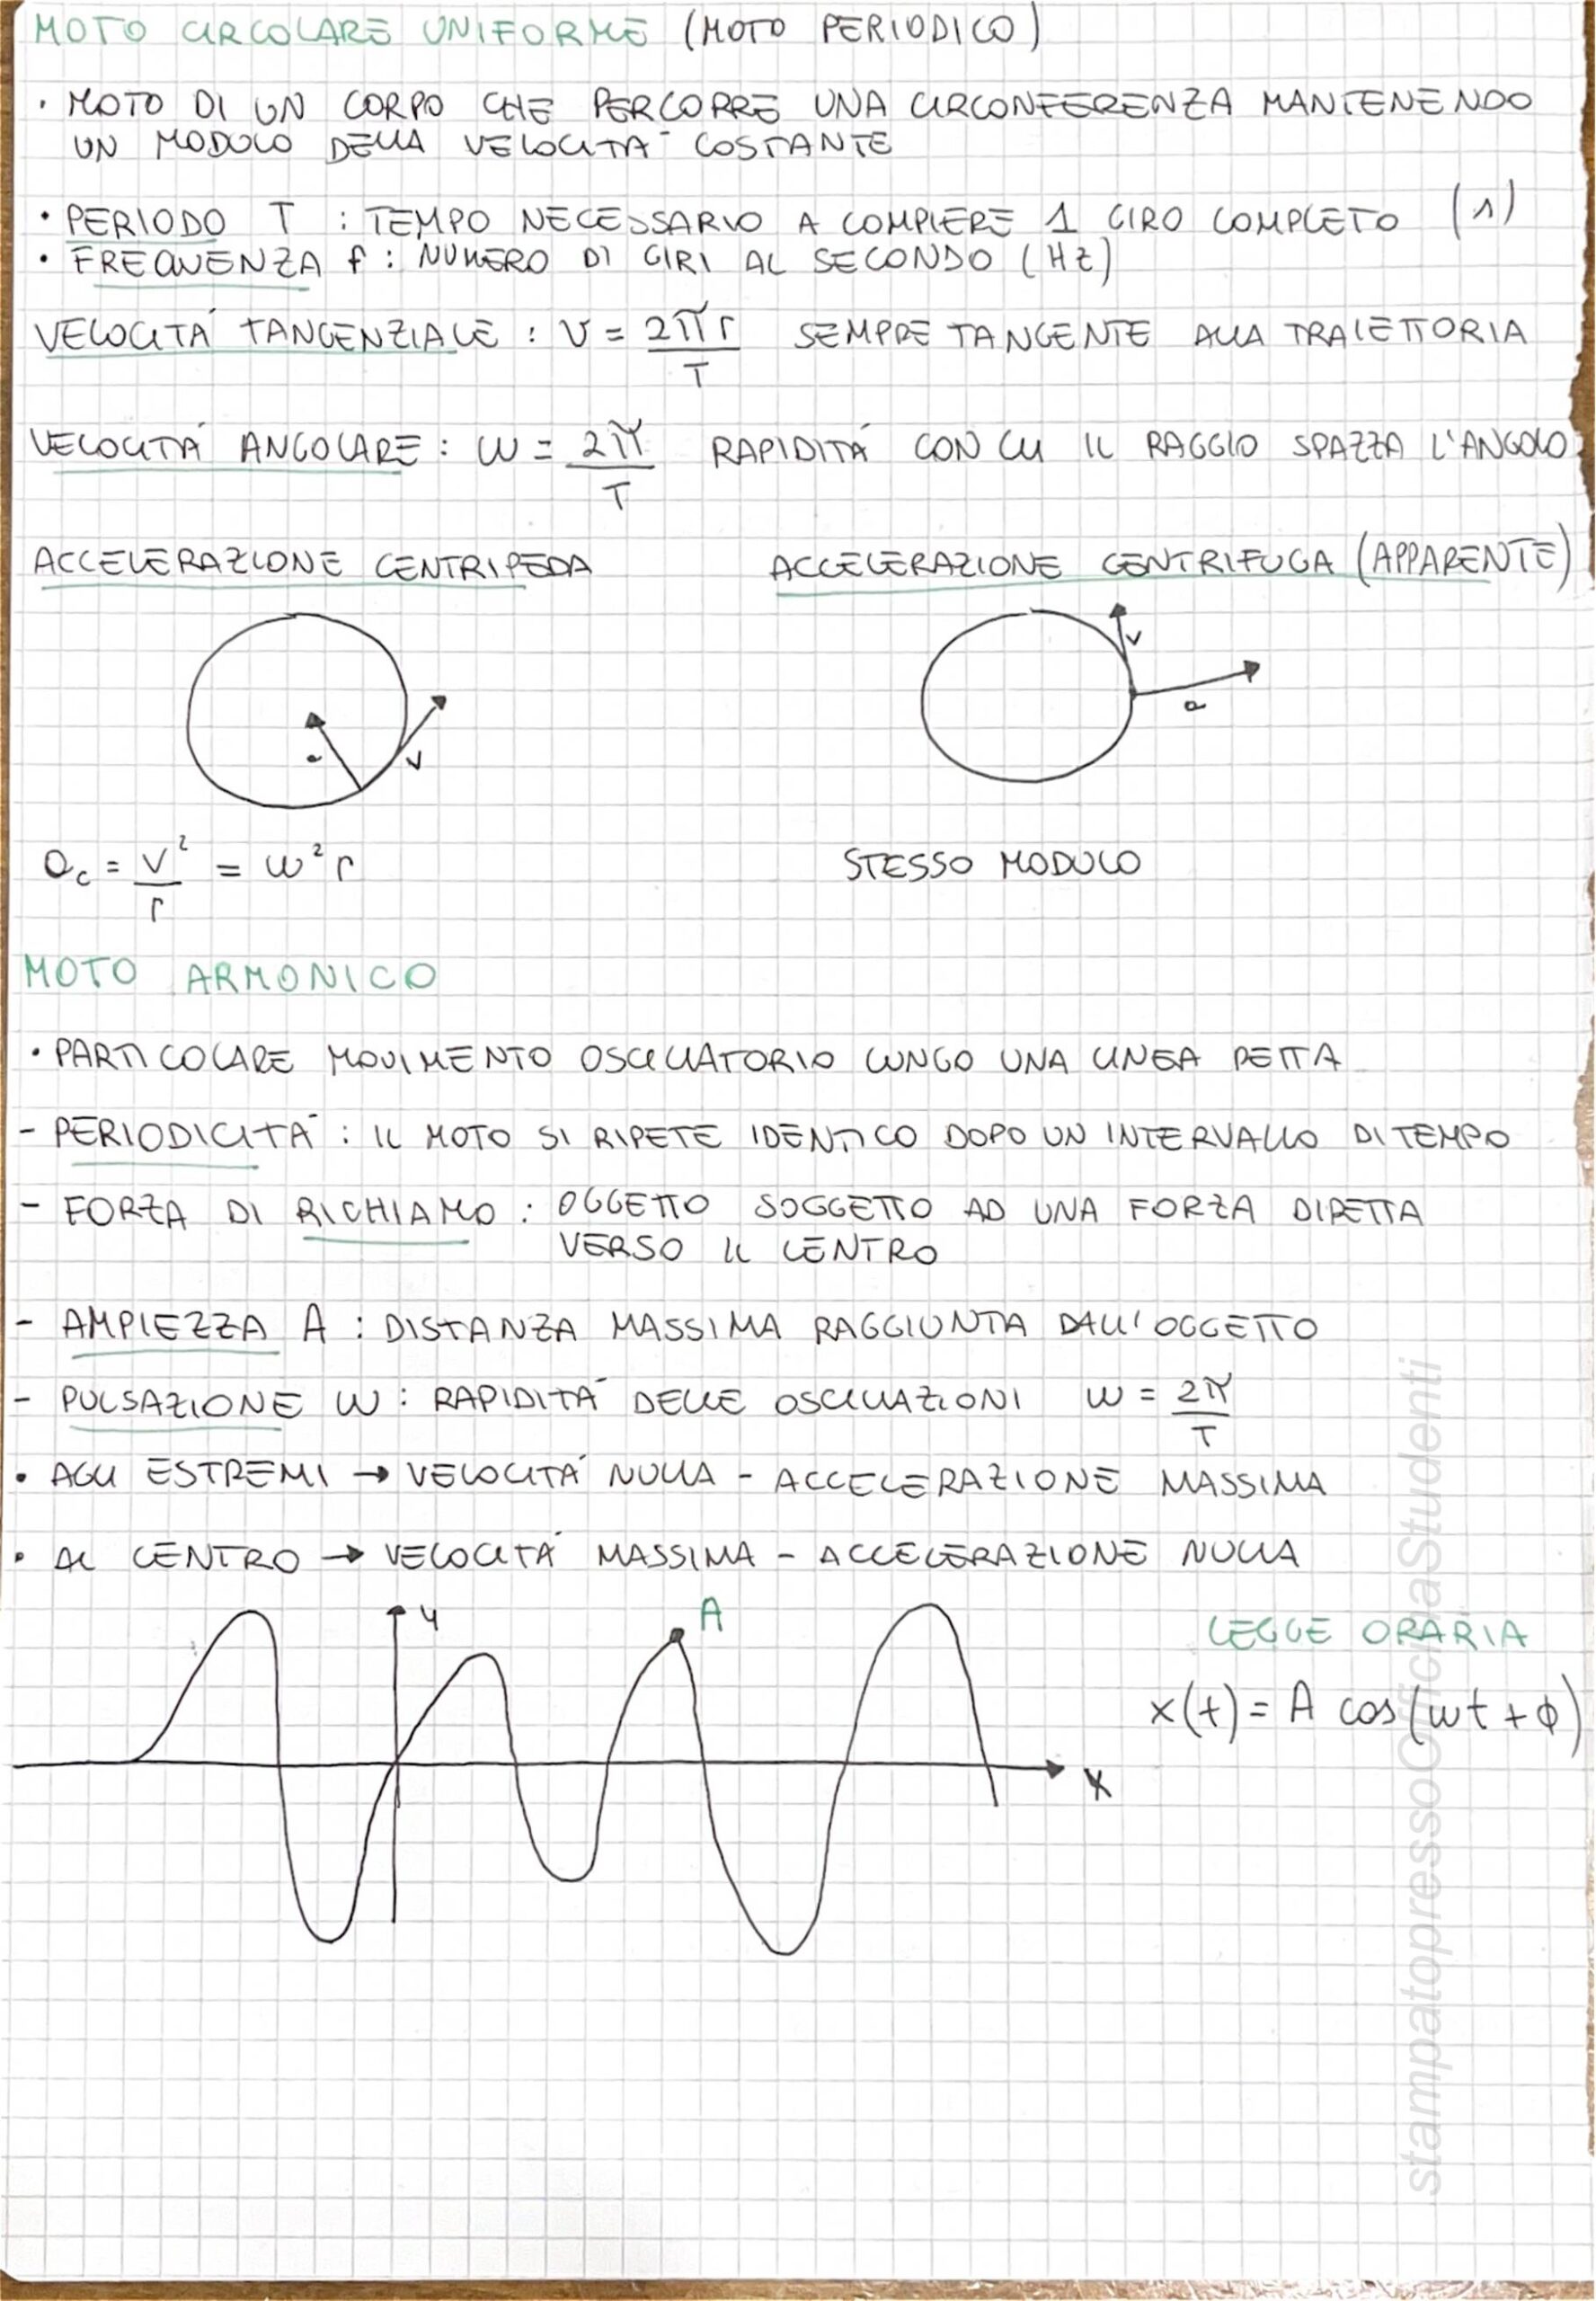 MOTO CIRCOLARE UNIFORME (MOTO PERIODICO)
• MOTO DI UN CORPO CHE PERCORRE UNA CIRCONFERENZA MANTENENDO
UN MODULO DELLA VELOCITÀ COSTANTE
• PERIODO T : TEMPO NECESSARIO A COMPIERE 1 GIRO COMPLETO (1)
• FREQUENZA f : NUMERO DI GIRI AL SECONDO (Hz)
VELOCITÀ TANGENZIALE : v = 2πr / T SEMPRE TANGENTE ALLA TRAIETTORIA
VELOCITÀ ANGOLARE : ω = 2π / T RAPIDITÀ CON CUI IL RAGGIO SPAZZA L'ANGOLO
ACCELERAZIONE CENTRIPEDA
ACCELERAZIONE CENTRIFUGA (APPARENTE)
v
a
v
a
ac = v² / r = ω² r
STESSO MODULO
MOTO ARMONICO
• PARTICOLARE MOVIMENTO OSCILLATORIO LUNGO UNA LINEA RETTA
- PERIODICITÀ : IL MOTO SI RIPETE IDENTICO DOPO UN INTERVALLO DI TEMPO
- FORZA DI RICHIAMO : OGGETTO SOGGETTO AD UNA FORZA DIRETTA
VERSO IL CENTRO
- AMPIEZZA A : DISTANZA MASSIMA RAGGIUNTA DALL'OGGETTO
- PULSAZIONE ω : RAPIDITÀ DELLE OSCILLAZIONI ω = 2π / T
• AGLI ESTREMI → VELOCITÀ NULLA - ACCELERAZIONE MASSIMA
• AL CENTRO → VELOCITÀ MASSIMA - ACCELERAZIONE NULLA
y
A
x
LEGGE ORARIA
x(t) = A cos(ωt + ϕ)
stampatopressoOfficinaStudenti